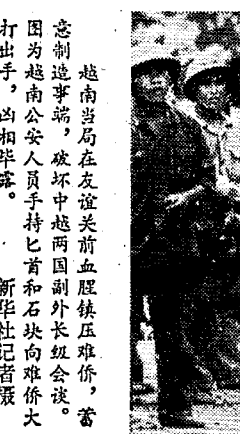 越南当局在友谊关前血腥镇压难侨，蓄
意制造事端，破坏中越两国副外长级会谈。
图为越南公安人员手持匕首和石块向难侨大
打出手，凶相毕露。 新华社记者摄